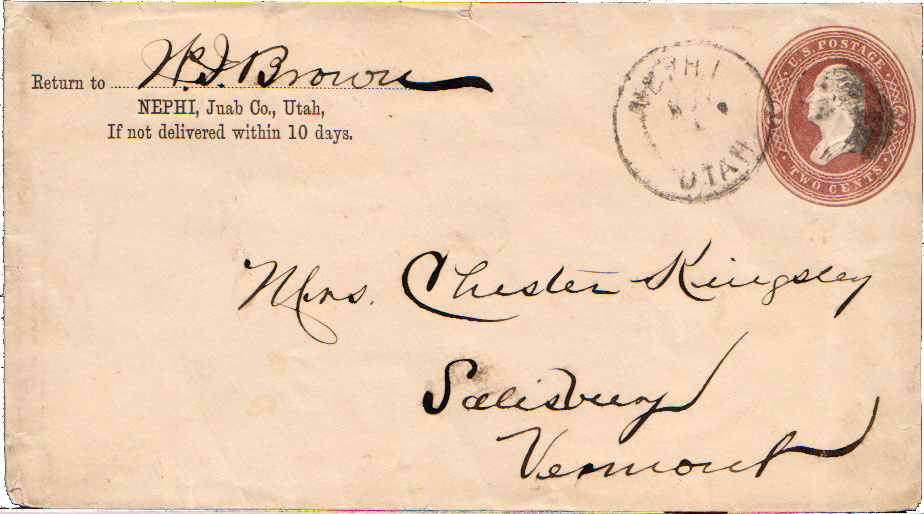 Return to W. I. Brown
NEPHI, Juab Co., Utah,
If not delivered within 10 days.
NEPHI
UTAH
U.S. POSTAGE
TWO CENTS
Mrs. Chester Kingsley
Salisbury
Vermont